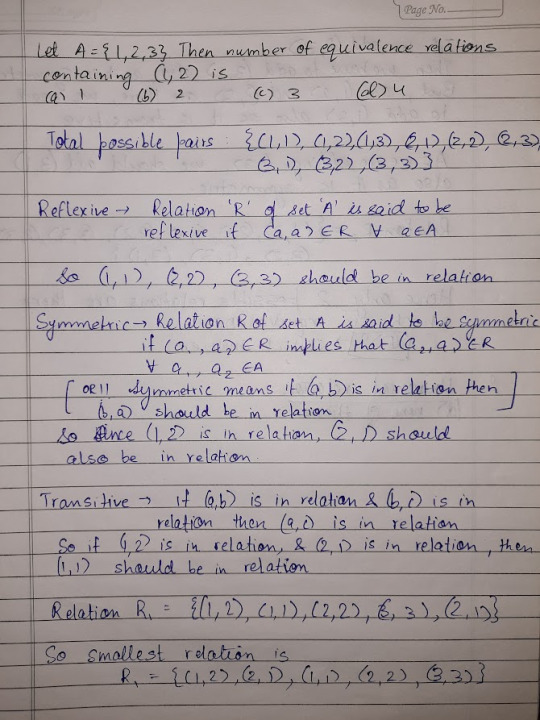 Page No.
Let A = {1, 2, 3} Then number of equivalence relations
containing (1, 2) is
(a) 1 (b) 2 (c) 3 (d) 4
Total possible pairs : {(1, 1), (1, 2), (1, 3), (2, 1), (2, 2), (2, 3),
(3, 1), (3, 2), (3, 3)}
Reflexive → Relation 'R' of set 'A' is said to be
reflexive if (a, a) ∈ R ∀ a ∈ A
So (1, 1), (2, 2), (3, 3) should be in relation
Symmetric → Relation R of set A is said to be symmetric
if (a₁, a₂) ∈ R implies that (a₂, a₁) ∈ R
∀ a₁, a₂ ∈ A
[OR || Symmetric means if (a, b) is in relation then
(b, a) should be in relation]
So Since (1, 2) is in relation, (2, 1) should
also be in relation.
Transitive → if (a, b) is in relation & (b, c) is in
relation then (a, c) is in relation
So if (1, 2) is in relation, & (2, 1) is in relation, then
(1, 1) should be in relation
Relation R₁ = {(1, 2), (1, 1), (2, 2), (3, 3), (2, 1)}
So smallest relation is
R₁ = {(1, 2), (2, 1), (1, 1), (2, 2), (3, 3)}